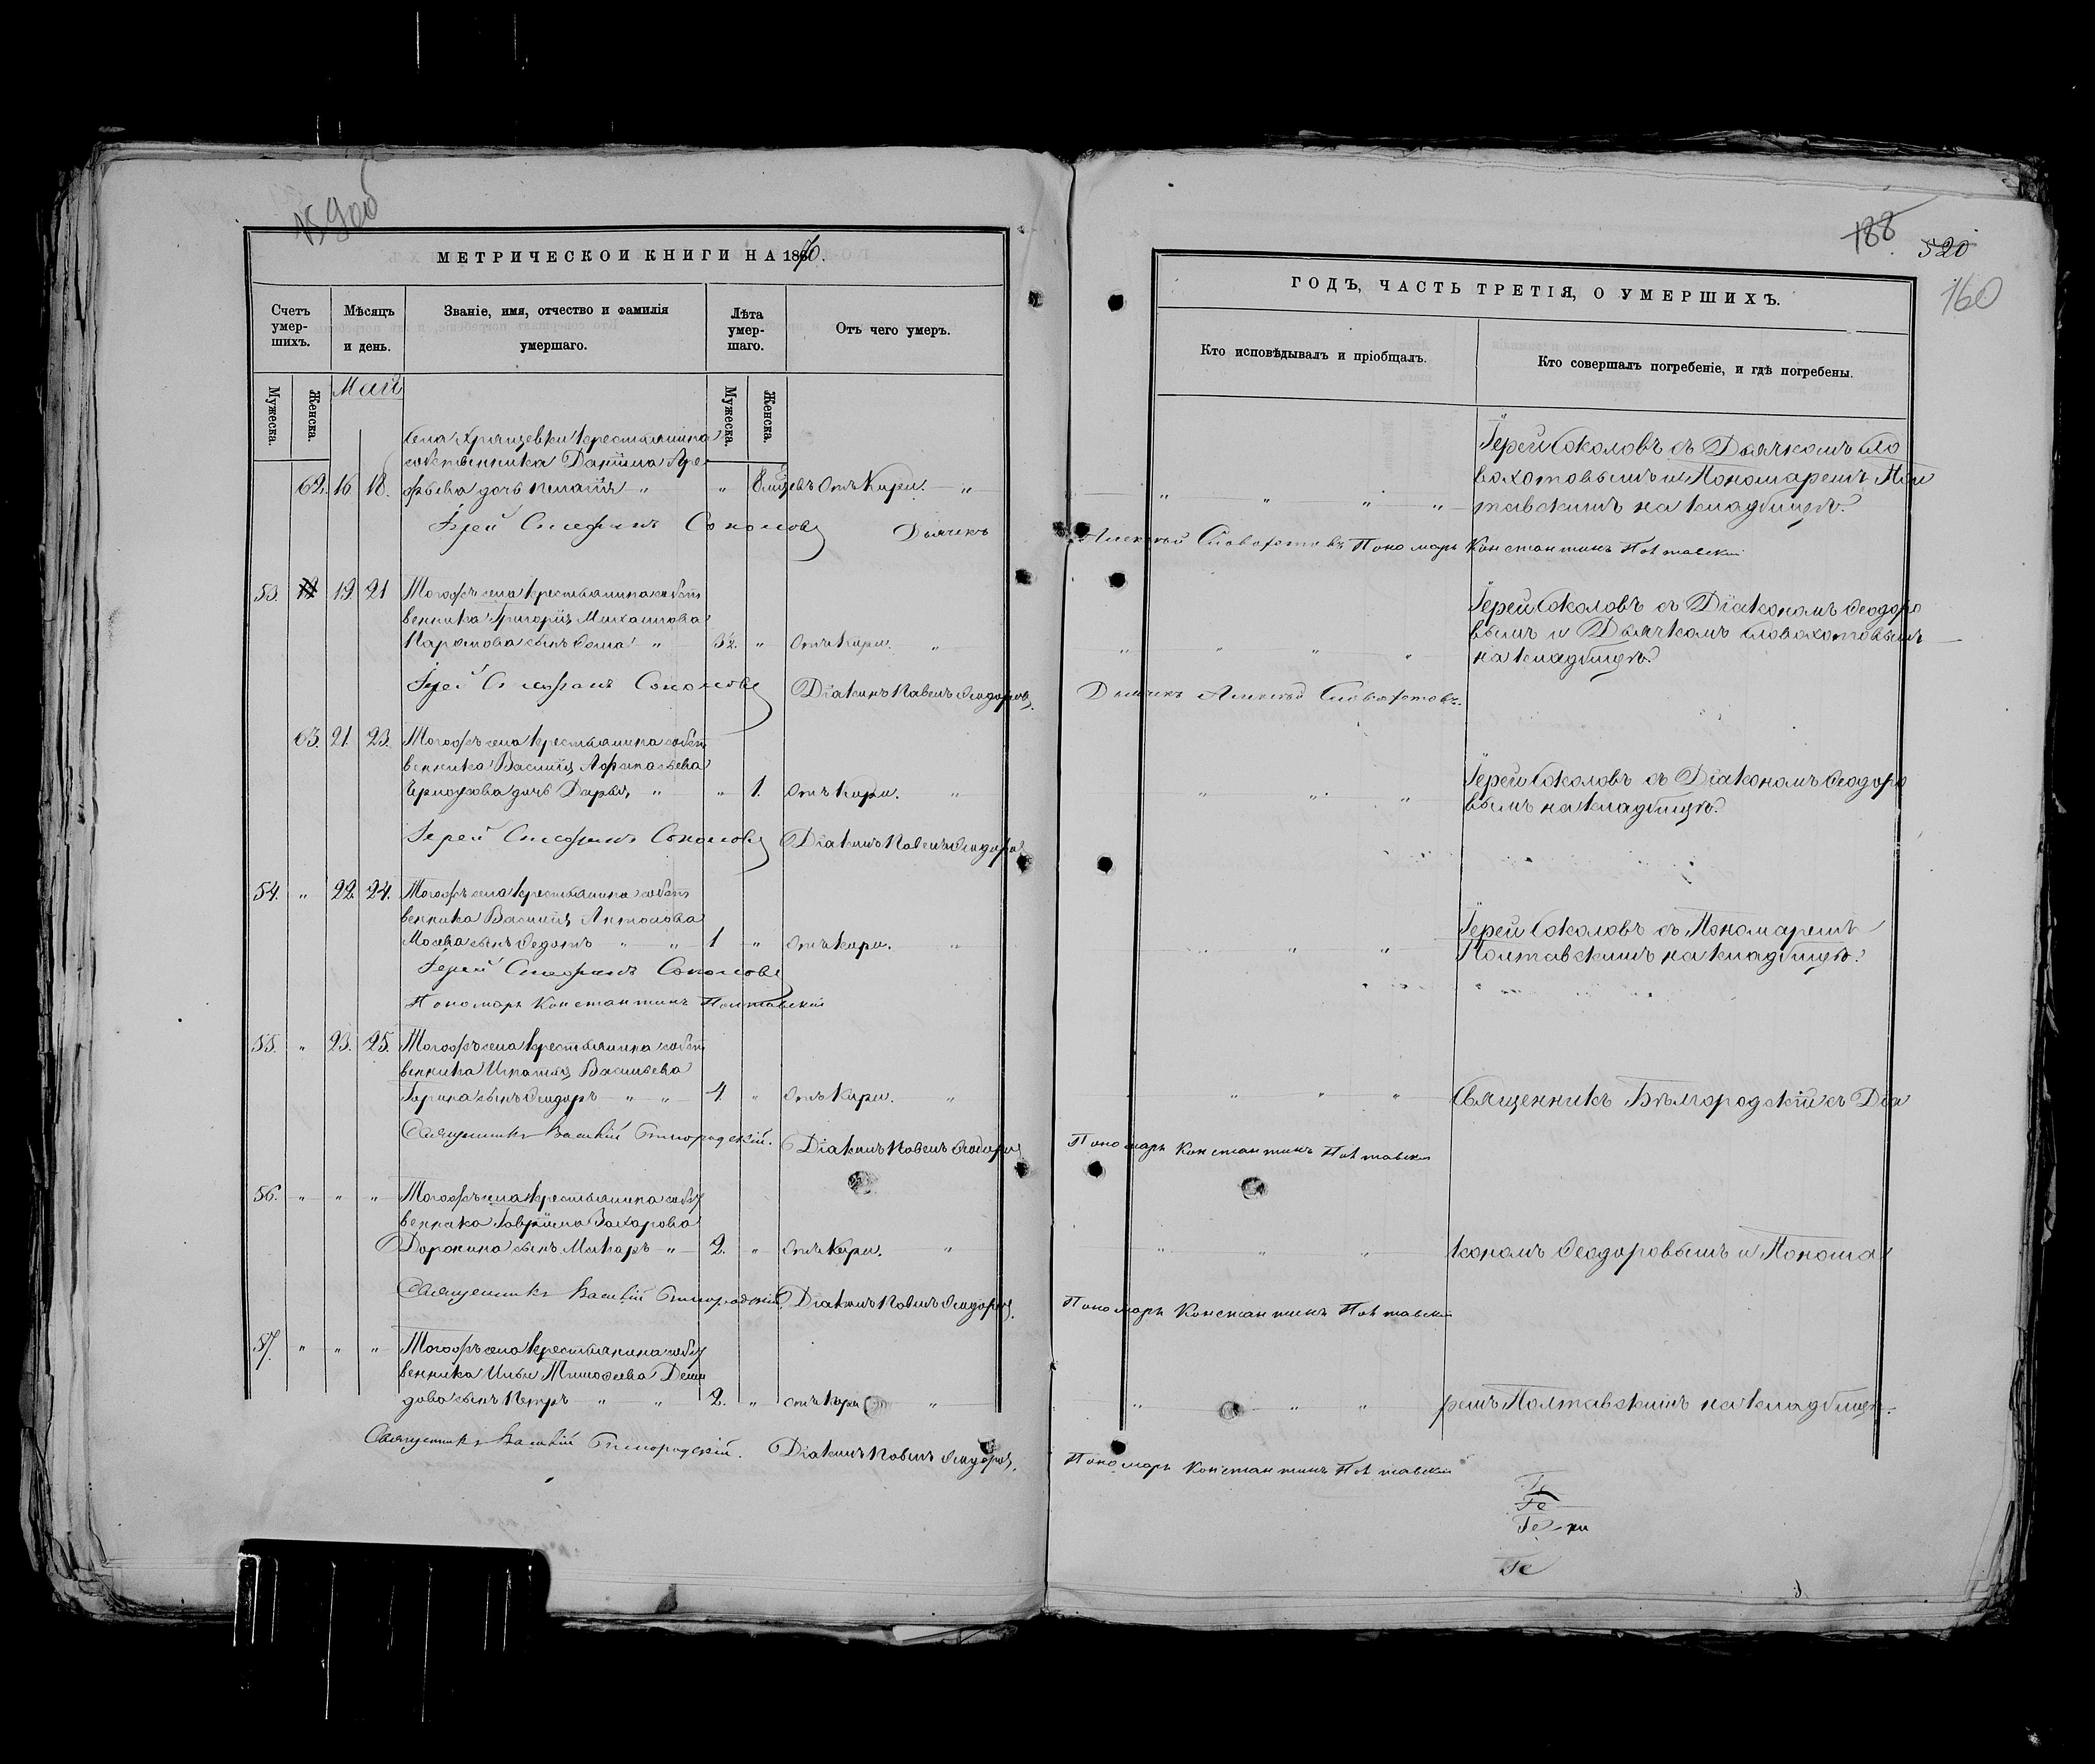 159об
МЕТРИЧЕСКОЙ КНИГИ НА 1870.
Счетъ умер-шихъ.
Мѣсяцъ и день.
Званіе, имя, отчество и фамилія умершаго.
Лѣта умер-шаго.
Отъ чего умеръ.
Мужеска.
Женска.
Май
Мужеска.
Женска.
села Хрящевки крестьянина
собственника Даніила Аре
62. 16 18. фьева дочь Пелагія " " 8 мцевъ Отъ Кори. "
Іерей Стефанъ Соколовъ Дьячекъ
53. 19. 21 Тогожъ села крестьянина собст
венника Григорія Михайлова
сынъ Ѳома " 32. " Отъ Кори. "
Іерей Стефанъ Соколовъ Діаконъ Павелъ Ѳеодоровъ.
63. 21. 23. Тогожъ села крестьянина собст
венника Василія Аѳанасьева
дочь Дарья " " 1. Отъ Кори. "
Іерей Стефанъ Соколовъ Діаконъ Павелъ Ѳеодоровъ
54. " 22 24. Тогожъ села крестьянина собст
венника Василія Антонова
сынъ Ѳедотъ " " 1 " Отъ Кори. "
Іерей Стефанъ Соколовъ
Пономарь Константинъ Полтавскій
55. " 23. 25. Тогожъ села крестьянина собст
венника Игнатія Васильева
сынъ Ѳеодоръ " " 4. " Отъ Кори. "
Священникъ Василій Бѣлгородскій. Діаконъ Павелъ Ѳеодоровъ
56. " " " Тогожъ села крестьянина собст
венника Гавріила Захарова
Доронина сынъ Макаръ " 2. " Отъ Кори. "
Священникъ Василій Бѣлгородскій Діаконъ Павелъ Ѳеодоровъ.
57. " " " Тогожъ села крестьянина собст
венника Ильи Тимоѳеева Деми
дова сынъ Петръ " " 2. " отъ Кори "
Священникъ Василій Бѣлгородскій. Діаконъ Павелъ Ѳеодоровъ.
188
520
160
ГОДЪ, ЧАСТЬ ТРЕТІЯ, О УМЕРШИХЪ.
Кто исповѣдывалъ и пріобщалъ.
Кто совершалъ погребеніе, и гдѣ погребены.
Іерей Соколовъ съ Дьячкомъ Сло
вохотовымъ и Пономаремъ Пол
" " " " тавскимъ на кладбищѣ.
Алексѣй Словохотовъ Пономарь Константинъ Полтавскій
Іерей Соколовъ съ Діакономъ Ѳеодоро
вымъ и Дьячкомъ Словохотовымъ
" " " " на кладбищѣ.
Дьячекъ Алексѣй Словохотовъ.
Іерей Соколовъ съ Діакономъ Ѳеодоро
" " " вымъ на кладбищѣ.
Іерей Соколовъ съ Пономаремъ
" " " Полтавскимъ на кладбищѣ.
" " " Священникъ Бѣлгородскій съ Діа
Пономарь Константинъ Полтавскій
" " " кономъ Ѳеодоровымъ и Понома
Пономарь Константинъ Полтавскій
" " " ремъ Полтавскимъ на кладбищѣ.
Пономарь Константинъ Полтавскій
Іе
Іе
Іе